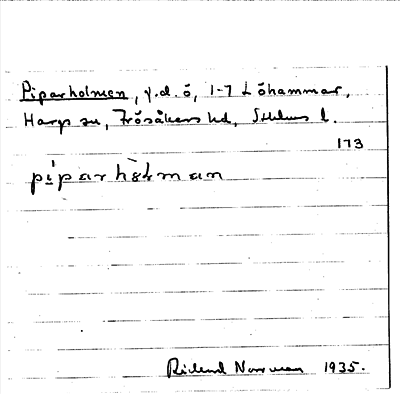 Piparholmen, y.d. ö, 1-7 Löhammar,
Hargs sn, Frösåkers hd, Sthlms l.
173
pìparhòlman
Rickard Norrman 1935.